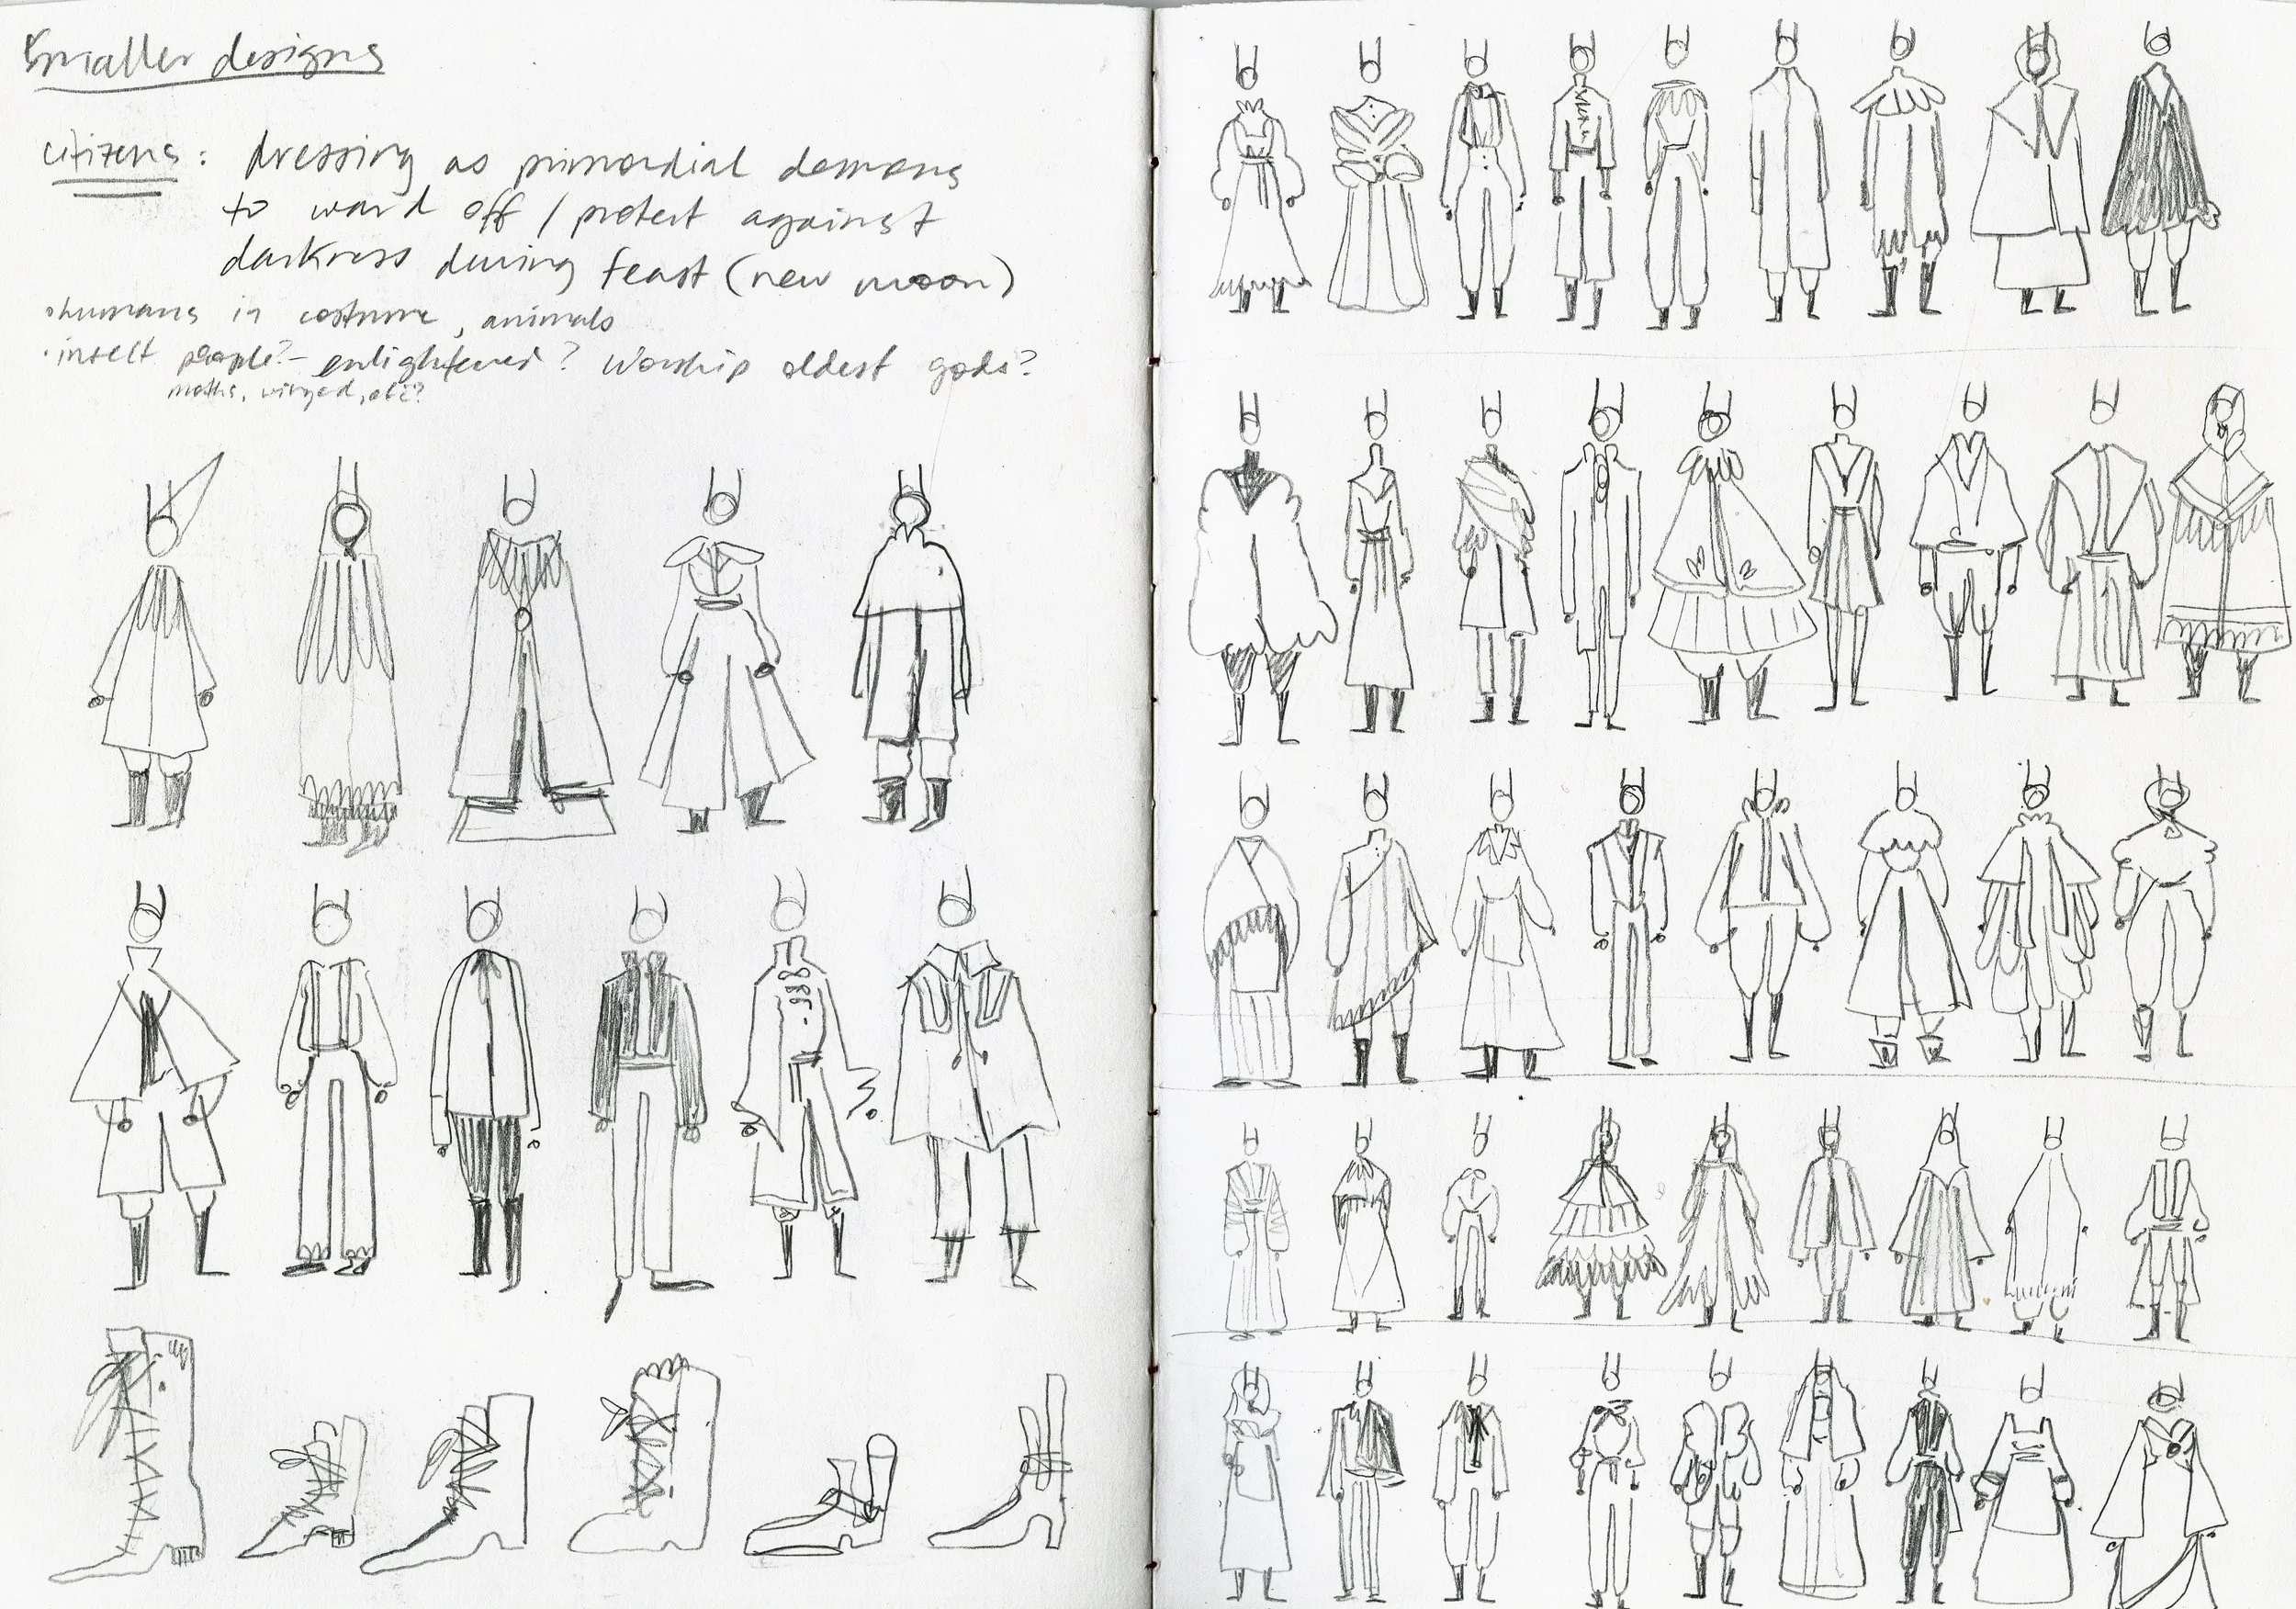 Smaller designs
citizens: dressing as primordial demons
to ward off / protect against
darkness during feast (new moon)
•humans in costume, animals
•insect people?- enlightened? Worship oldest gods?
moths, winged, etc?